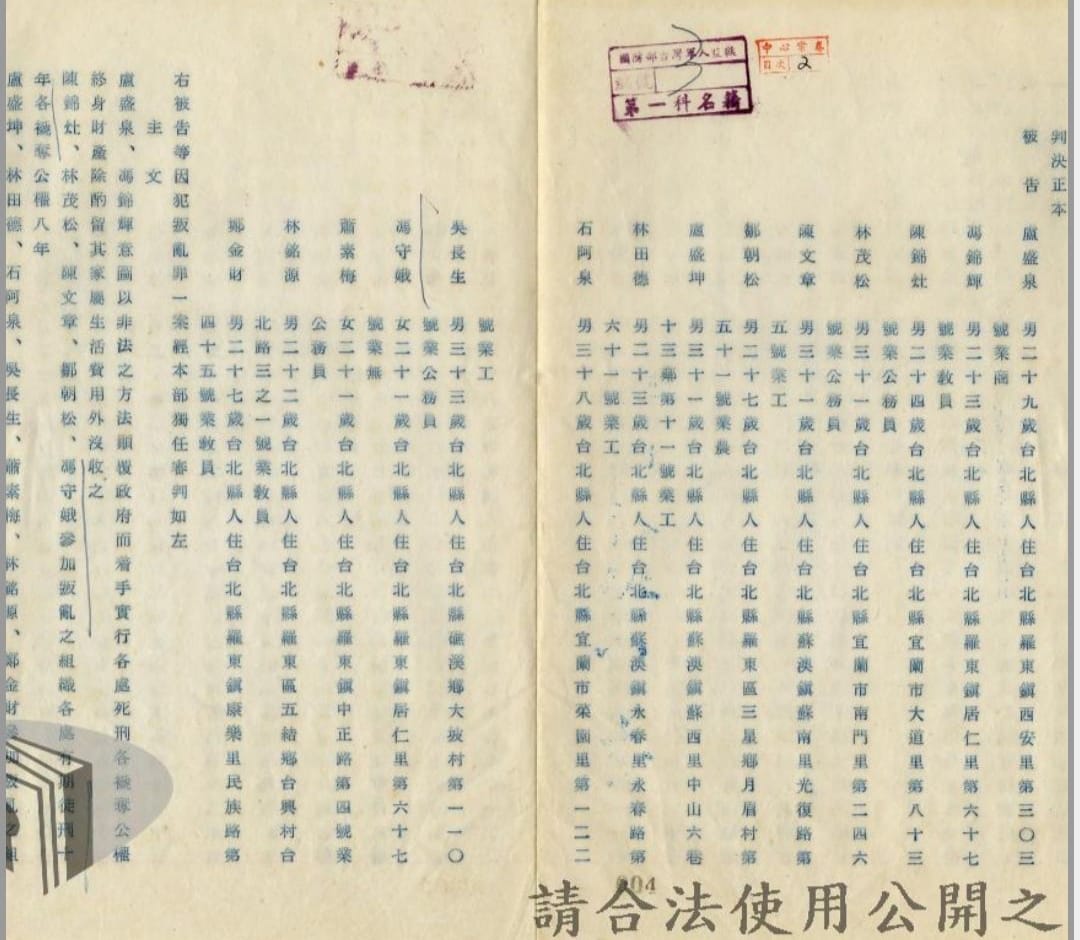 中心宗卷
目次 2
第一科名籍
判決正本
被告 盧盛泉 男二十九歲台北縣人住台北縣羅東鎮西安里第三〇三
號業商
馮錦輝 男二十三歲台北縣人住台北縣羅東鎮居仁里第六十七
號業教員
陳錦灶 男二十四歲台北縣人住台北縣宜蘭市大道里第八十三
號業公務員
林茂松 男三十一歲台北縣人住台北縣宜蘭市南門里第二四六
號業公務員
陳文章 男三十一歲台北縣人住台北縣蘇澳鎮蘇南里光復路第
五號業工
鄒朝松 男二十七歲台北縣人住台北縣羅東區三星鄉月眉村第
五十一號業農
盧盛坤 男三十一歲台北縣人住台北縣蘇澳鎮蘇西里中山六巷
十三鄰第十一號業工
林田德 男二十三歲台北縣人住台北縣蘇澳鎮永春里永春路第
六十一號業工
石阿泉 男三十八歲台北縣人住台北縣宜蘭市菜園里第一二二
號業工
吳長生 男三十三歲台北縣人住台北縣礁溪鄉大坡村第一一〇
號業公務員
馮守娥 女二十一歲台北縣人住台北縣羅東鎮居仁里第六十七
號業無
蕭素梅 女二十一歲台北縣人住台北縣羅東鎮中正路第四號業
公務員
林銘源 男二十二歲台北縣人住台北縣羅東區五結鄉台興村台
北路三之一號業教員
鄭金財 男二十七歲台北縣人住台北縣羅東鎮康樂里民族路第
四十五號業教員
右被告等因犯叛亂罪一案經本部獨任審判如左
主文
盧盛泉、馮錦輝意圖以非法之方法顛覆政府而着手實行各處死刑各褫奪公權
終身財產除酌留其家屬生活費用外沒收之
陳錦灶、林茂松、陳文章、鄒朝松、馮守娥參加叛亂之組織各處有期徒刑十
年各褫奪公權八年
盧盛坤、林田德、石阿泉、吳長生、蕭素梅、林銘源、鄭金財參加叛亂之組
004
請合法使用公開之